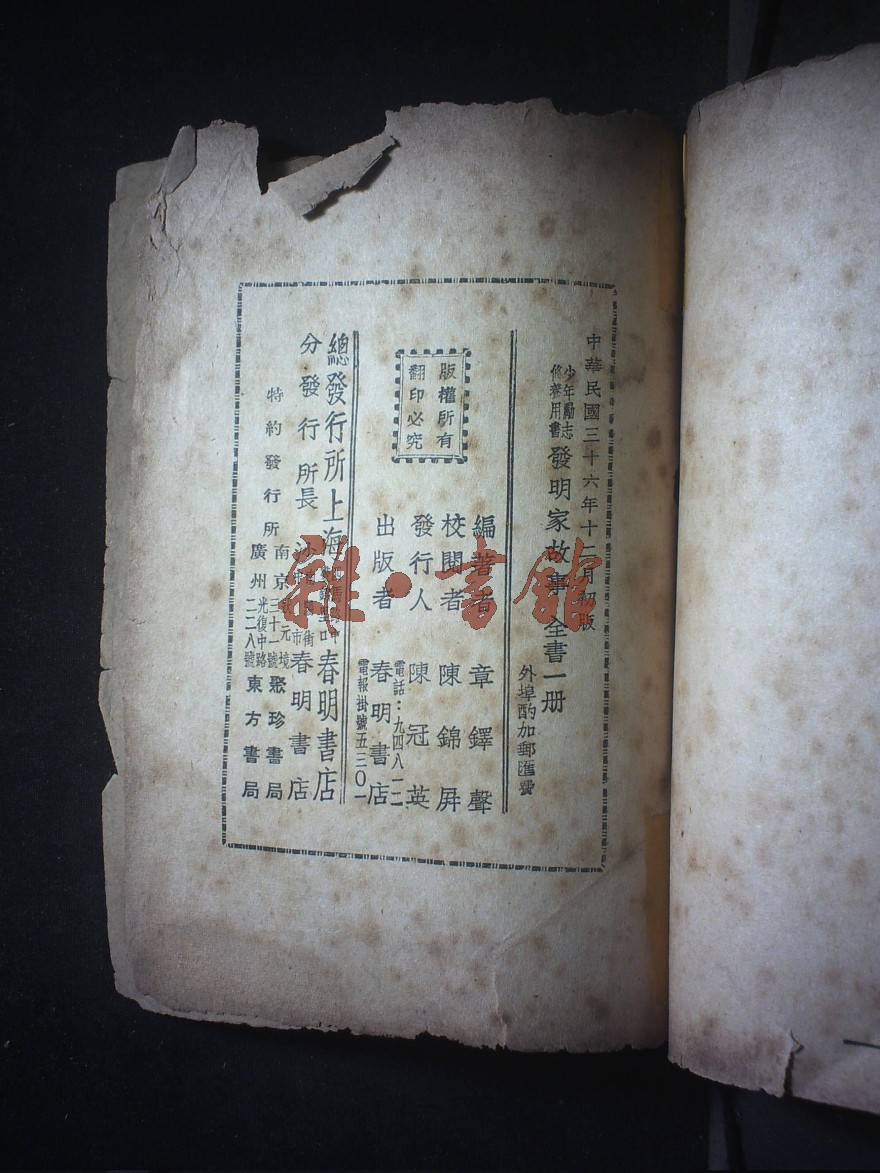 中華民國三十六年十二月初版
少年勵志
修養用書
發明家故事 全書一册
外埠酌加郵匯費
版權所有
翻印必究
編著者 章鐸聲
校閱者 陳錦屏
發行人 陳冠英
電話：九四八一二
出版者 春明書店
電報掛號五三〇一
總發行所 上海 春明書店
分發行所 長沙 春明書店
特約發行所
南京 三十一號 聚珍書局
廣州 光復中路 二二八號 東方書局
雜·書館